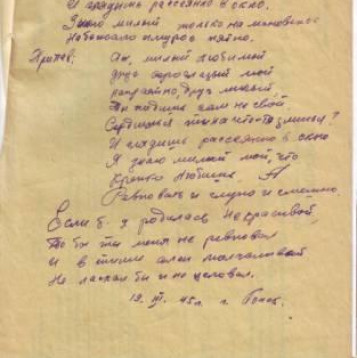 И глядишь рассеянно в окно.
Знаю милый только на мгновенье
Набежало хмурое пятно.
Припев: Ах, милый любимый
друг хороший мой
напрасно, друг милый,
Ты ходишь сам не свой.
Сердишься ты на что-то злишься?
И глядишь рассеянно в окно
Я знаю милый мой, что
крепко любишь. А
Ревновать и глупо и смешно.
Если б я родилась некрасивой
То бы ты меня не ревновал
И в тиши аллеи молчаливой
Не ласкал бы и не целовал.
19. III. 45 г. г.